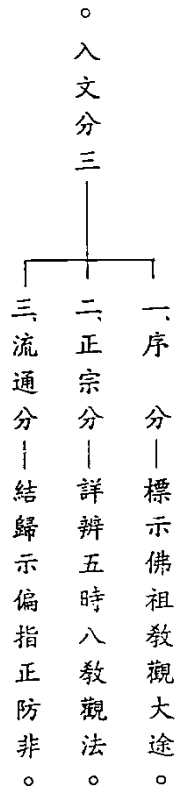 。入文分三
一、序　分—標示佛祖教觀大途。
二、正宗分—詳辨五時八教觀法。
三、流通分—結歸示偏指正防非。